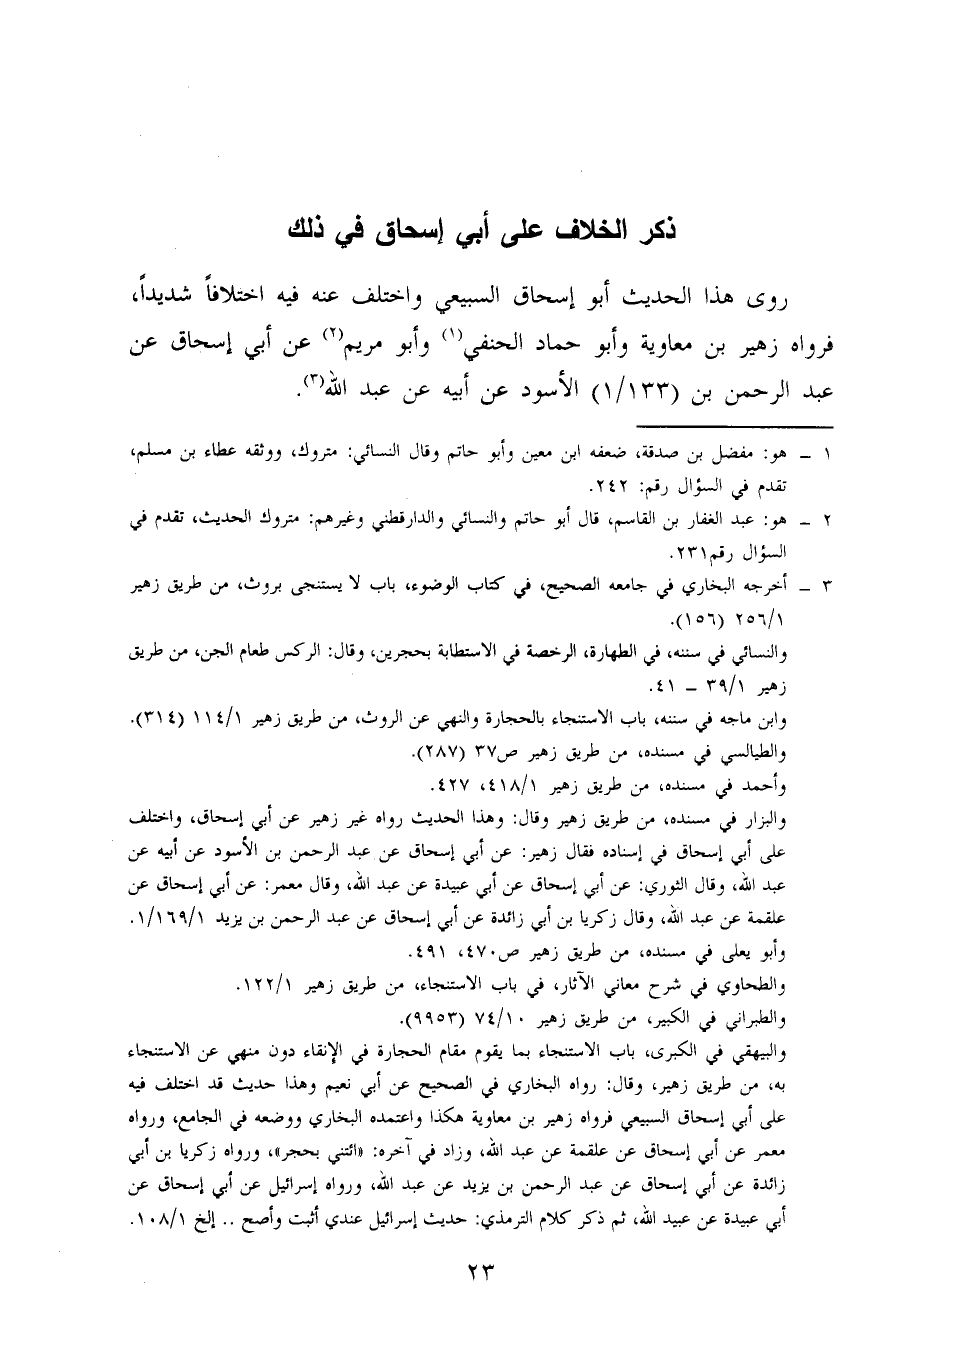 ذكر الخلاف على أبي إسحاق في ذلك
روى هذا الحديث أبو إسحاق السبيعي واختلف عنه فيه اختلافاً شديداً،
فرواه زهير بن معاوية وأبو حماد الحنفي(١) وأبو مريم(٢) عن أبي إسحاق عن
عبد الرحمن بن (١/١٣٣) الأسود عن أبيه عن عبد الله(٣).
١ ـ هو: مفضل بن صدقة، ضعفه ابن معين وأبو حاتم وقال النسائي: متروك، ووثقه عطاء بن مسلم،
تقدم في السؤال رقم: ٢٤٢.
٢ ـ هو: عبد الغفار بن القاسم، قال أبو حاتم والنسائي والدارقطني وغيرهم: متروك الحديث، تقدم في
السؤال رقم٢٣١.
٣ ـ أخرجه البخاري في جامعه الصحيح، في كتاب الوضوء، باب لا يستنجى بروث، من طريق زهير
٢٥٦/١ (١٥٦).
والنسائي في سننه، في الطهارة، الرخصة في الاستطابة بحجرين، وقال: الركس طعام الجن، من طريق
زهير ٣٩/١ ـ ٤١.
وابن ماجه في سننه، باب الاستنجاء بالحجارة والنهي عن الروث، من طريق زهير ١١٤/١ (٣١٤).
والطيالسي في مسنده، من طريق زهير ص٣٧ (٢٨٧).
وأحمد في مسنده، من طريق زهير ٤١٨/١، ٤٢٧.
والبزار في مسنده، من طريق زهير وقال: وهذا الحديث رواه غير زهير عن أبي إسحاق، واختلف
على أبي إسحاق في إسناده فقال زهير: عن أبي إسحاق عن عبد الرحمن بن الأسود عن أبيه عن
عبد الله، وقال الثوري: عن أبي إسحاق عن أبي عبيدة عن عبد الله، وقال معمر: عن أبي إسحاق عن
علقمة عن عبد الله، وقال زكريا بن أبي زائدة عن أبي إسحاق عن عبد الرحمن بن يزيد ١/١٦٩/١.
وأبو يعلى في مسنده، من طريق زهير ص٤٧٠، ٤٩١.
والطحاوي في شرح معاني الآثار، في باب الاستنجاء، من طريق زهير ١٢٢/١.
والطبراني في الكبير، من طريق زهير ٧٤/١٠ (٩٩٥٣).
والبيهقي في الكبرى، باب الاستنجاء بما يقوم مقام الحجارة في الإنقاء دون منهي عن الاستنجاء
به، من طريق زهير، وقال: رواه البخاري في الصحيح عن أبي نعيم وهذا حديث قد اختلف فيه
على أبي إسحاق السبيعي فرواه زهير بن معاوية هكذا واعتمده البخاري ووضعه في الجامع، ورواه
معمر عن أبي إسحاق عن علقمة عن عبد الله، وزاد في آخره: «ائتني بحجر»، ورواه زكريا بن أبي
زائدة عن أبي إسحاق عن عبد الرحمن بن يزيد عن عبد الله، ورواه إسرائيل عن أبي إسحاق عن
أبي عبيدة عن عبيد الله، ثم ذكر كلام الترمذي: حديث إسرائيل عندي أثبت وأصح .. إلخ ١٠٨/١.
٢٣